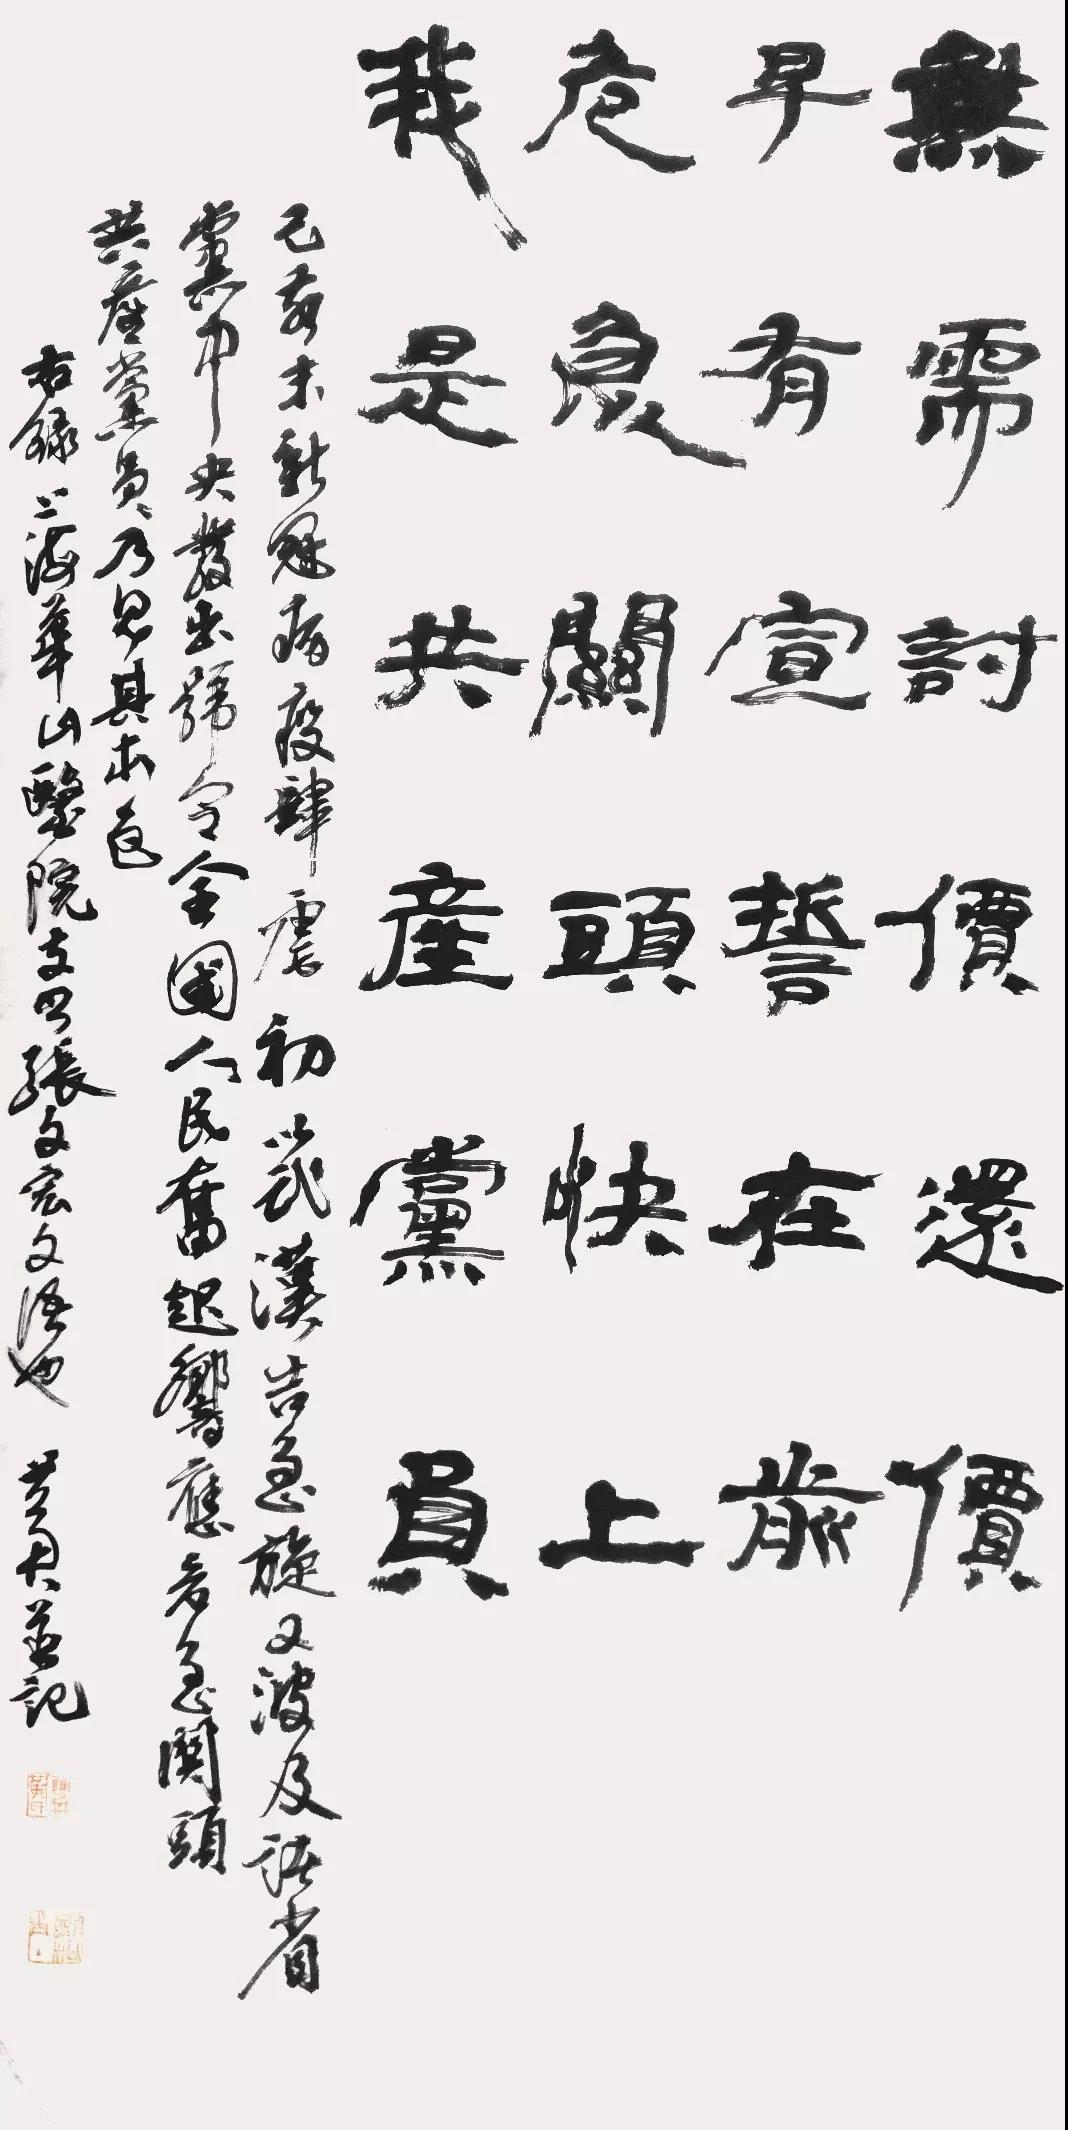 無需討價還價
早有宣誓在前
危急關頭快上
我是共產黨員
己亥末新冠病疫肆虐初以武漢告急旋又波及諸省
黨中央發出號令全國人民奮起響應危急關頭
共產黨員乃見其本色
右錄上海華山醫院支書張文宏文語也
並記